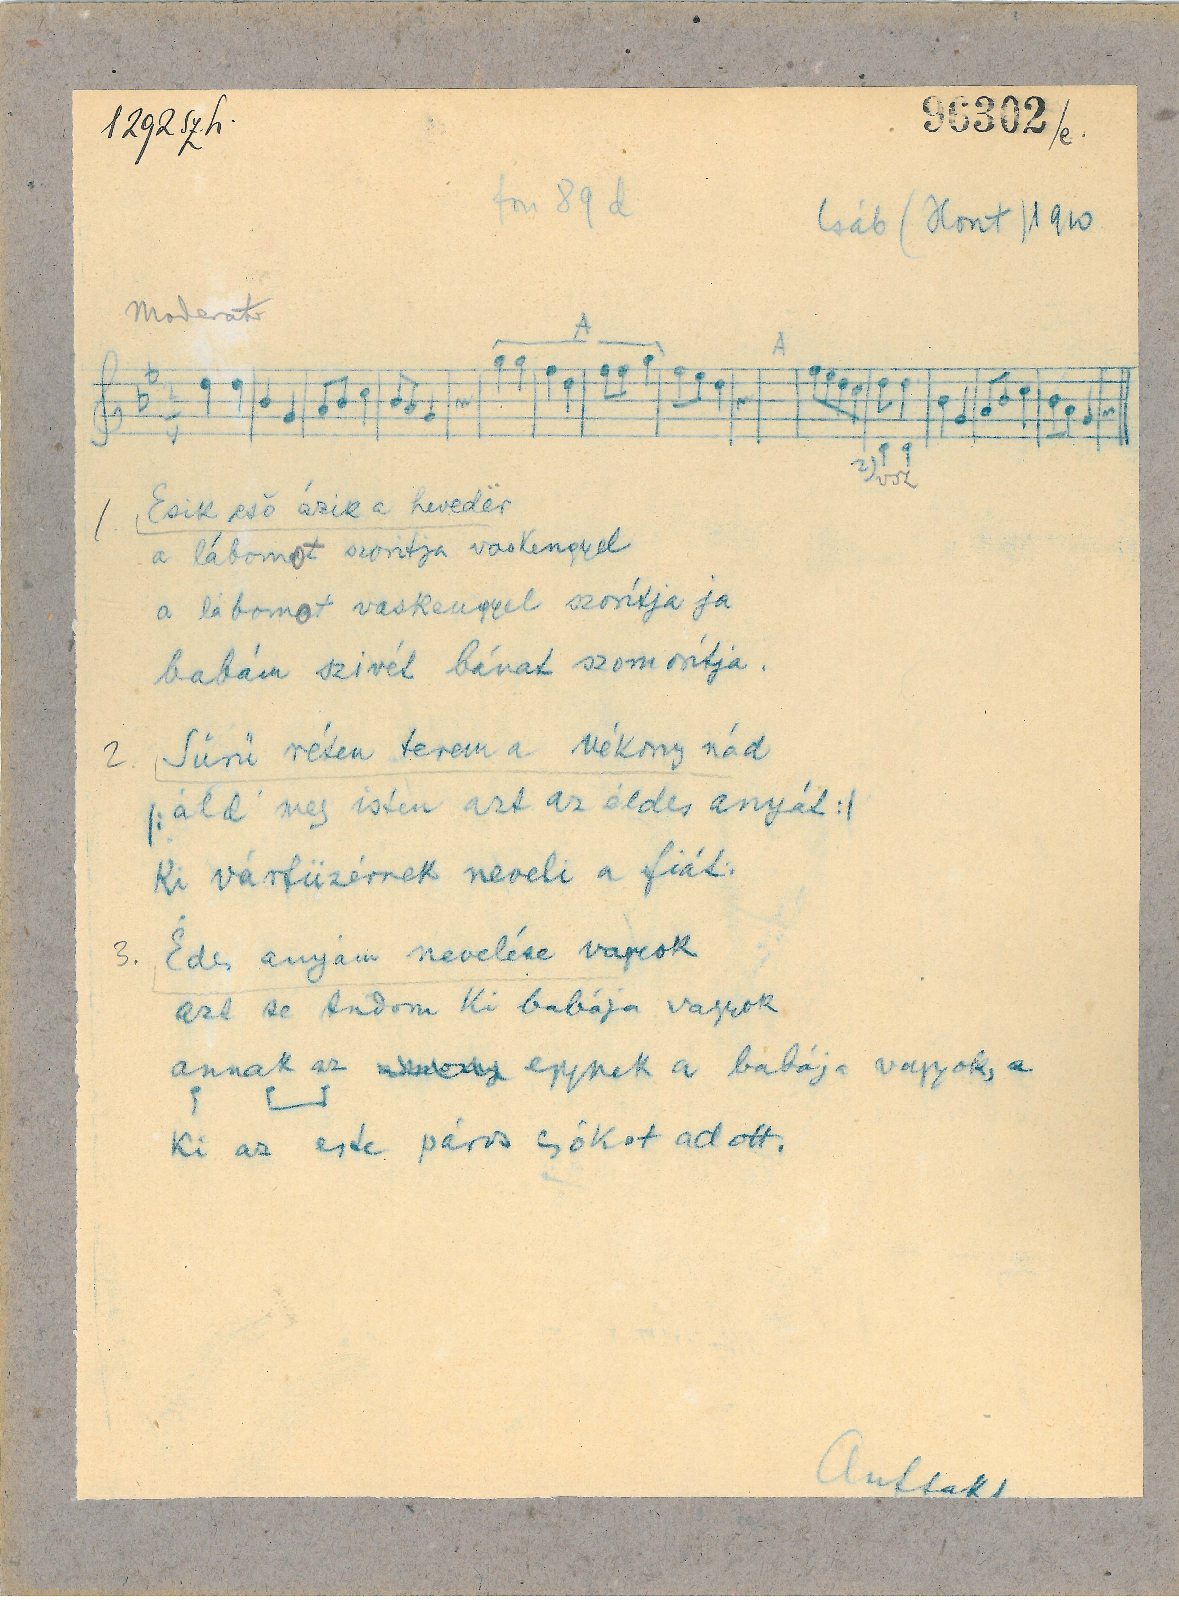 1292 szh.
96302/e.
fon 89 d
Csáb (Hont) 1910
Moderato
A
A
2) vsz
1 Esik eső ázik a hevedër
a lábomot szoritja vaskengyel
a lábomot vaskengyel szorítja ja
babám szivét bánat szomorítja.
2. Sürü réten terem a vékony nád
|: áld meg isten azt az éldes anyát :|
Ki vártüzérnek neveli a fiát.
3. Édes anyám nevelése vagyok
azt se tudom Ki babája vagyok
annak az egynek a babája vagyok, a
Ki az este páros csókot adott.
Auftakt